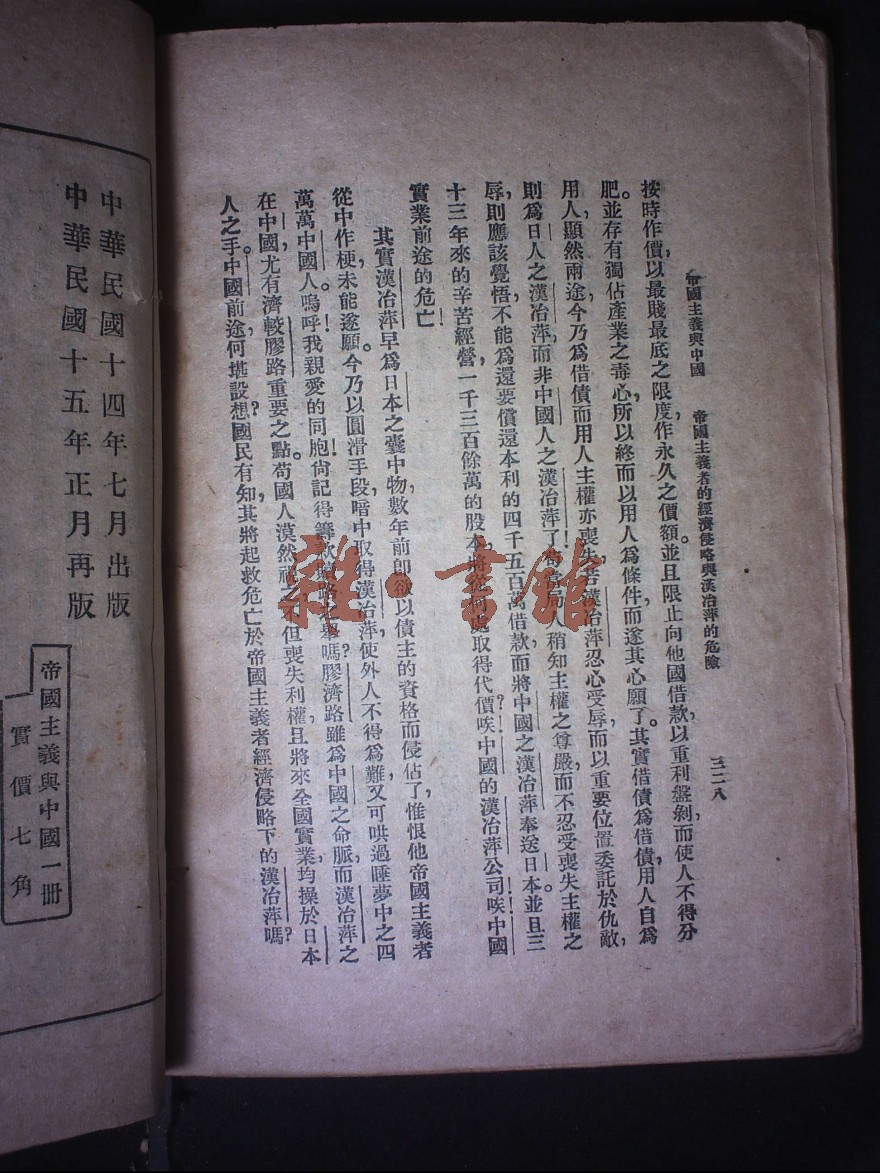 帝國主義與中國　帝國主義者的經濟侵略與漢冶萍的危險　三二八
按時作價，以最賤最底之限度，作永久之價額。並且限止向他國借款，以重利盤剝，而使人不得分
肥。並存有獨佔產業之毒心，所以終而以用人為條件，而遂其心願了。其實借債為借債，用人自為
用人，顯然兩途，今乃為借債而用人，主權亦喪失，若漢冶萍忍心受辱，而以重要位置委託於仇敵，
則為日人之漢冶萍，而非中國人之漢冶萍了！苟當局人稍知主權之尊嚴，而不忍受喪失主權之
辱，則應該覺悟，不能為還要償還本利的四千五百萬借款，而將中國之漢冶萍奉送日本，並且三
十三年來的辛苦經營，一千三百餘萬的股本，將從何處取得代價，唉！中國的漢冶萍公司！唉！中國
實業前途的危亡！
其實漢冶萍早為日本之囊中物，數年前即欲以債主的資格而侵佔了，惟恨他帝國主義者
從中作梗，未能遂願。今乃以圓滑手段，暗中取得漢冶萍，使外人不得為難，又可哄過睡夢中之四
萬萬中國人。嗚呼！我親愛的同胞！尙記得籌款贖路之舉嗎？膠濟路雖為中國之命脈，而漢冶萍之
在中國，尤有濟較膠路重要之點。苟國人漠然視之，不但喪失利權，且將來全國實業，均操於日本
人之手。中國前途，何堪設想？國民有知，其將起救危亡於帝國主義者經濟侵略下的漢冶萍嗎？
中華民國十四年七月出版
中華民國十五年正月再版
帝國主義與中國一冊
實價七角
雜·書館